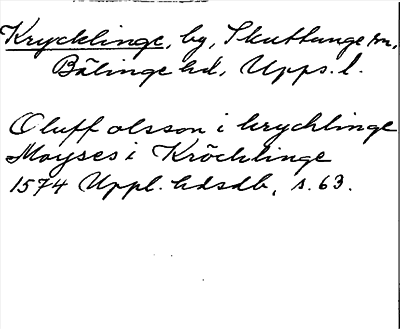 Krycklinge, by, Skuttunge sn,
Bälinge hd, Upps. l.
Oluff olsson i krychlinge
Moyses i Kröcklinge
1574 Uppl. hdsdb, s. 63.